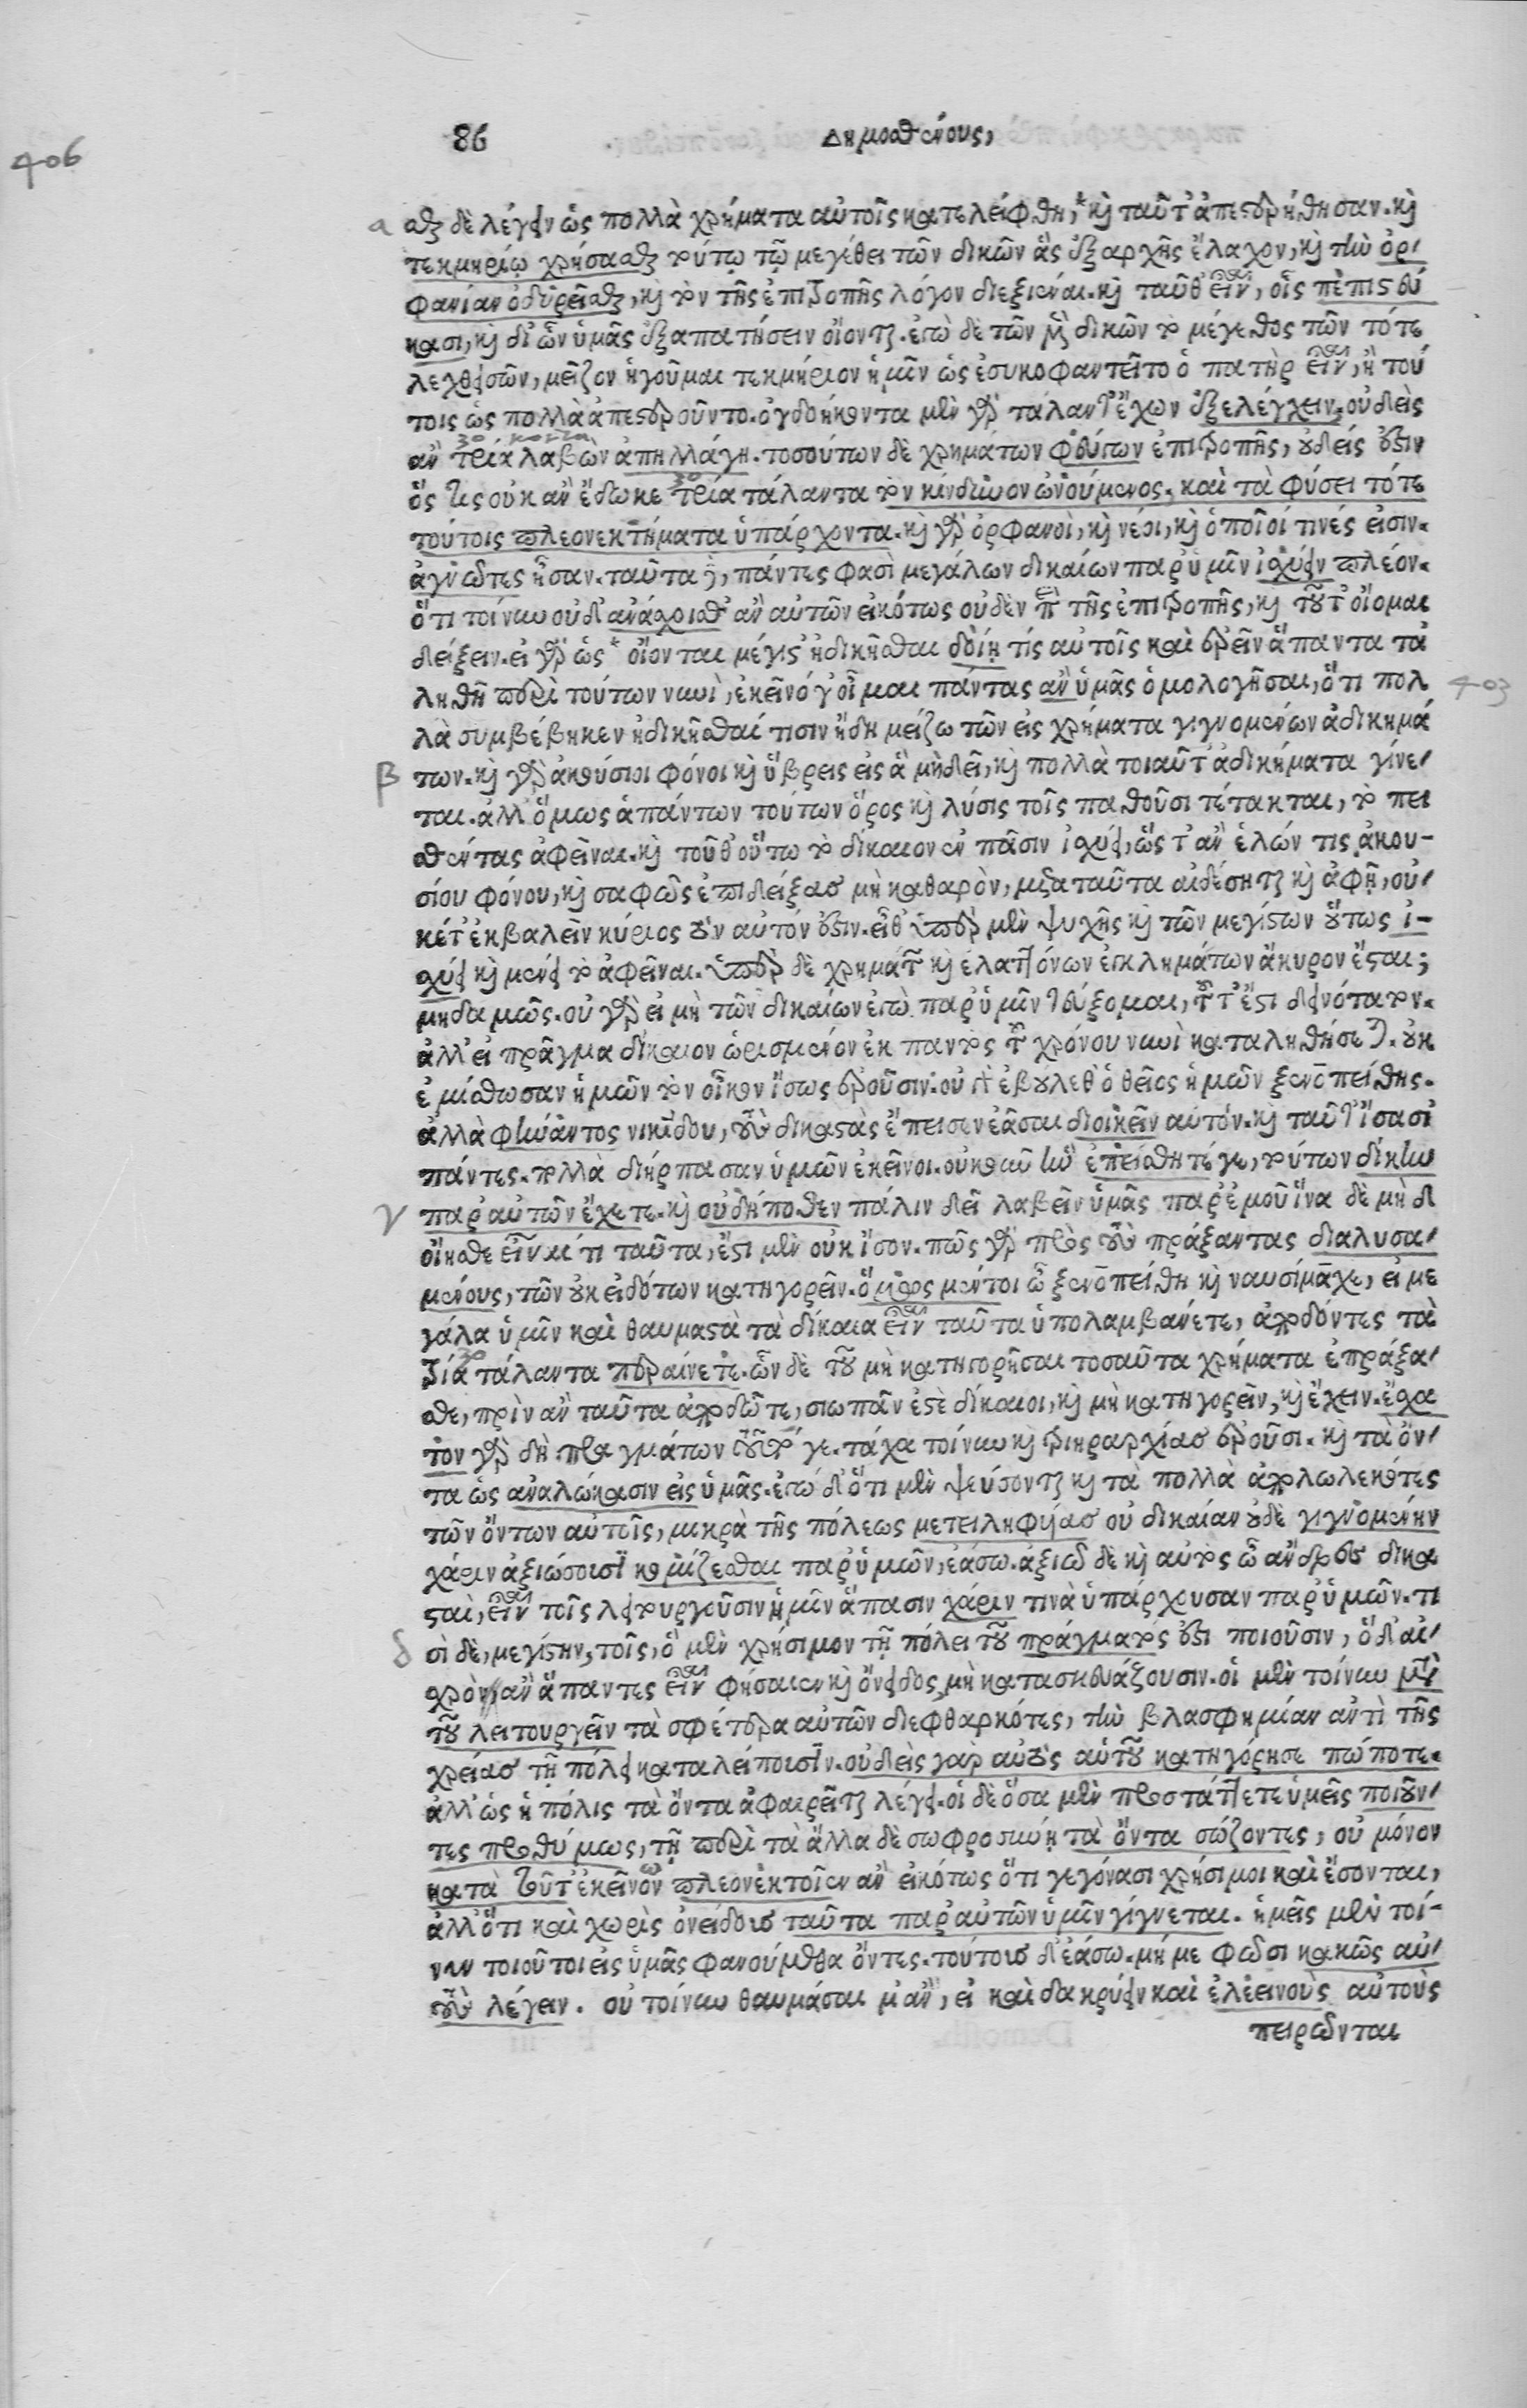 86
Δημοσθένους,
406
α
σθαι δὲ λέγειν ὡς πολλὰ χρήματα αὐτοῖς κατελείφθη,* ϗ ταῦτ' ἀπεστερήθησαν. ϗ
τεκμηρίῳ χρήσασθαι τούτῳ τῷ μεγέθει τῶν δικῶν ἃς ἐξαρχῆς ἔλαχον, ϗ τὴν ὀρ-
φανίαν ὀδυρεῖσθαι, ϗ τὸν τῆς ἐπιτροπῆς λόγον διεξιέναι. ϗ ταῦθ' εἶναι, οἷς πεπιστεύ
κασι, ϗ δι' ὧν ὑμᾶς ἐξαπατήσειν οἴονται. ἐγὼ δὲ τῶν μὲν δικῶν τὸ μέγεθος τῶν τότε
λεχθεισῶν, μεῖζον ἡγοῦμαι τεκμήριον ἡμῖν ὡς ἐσυκοφαντεῖτο ὁ πατὴρ εἶναι, ἢ τού
τοις ὡς πολλὰ ἀπεστεροῦντο. ὀγδοήκοντα μὲν γὰρ τάλαντ' ἔχων ἐξελέγχειν, οὐδεὶς
ἂν τρία λαβὼν ἀπηλλάγη. τοσούτων δὲ χρημάτων φεύγων ἐπιτροπῆς, οὐδείς ἐστιν
ὅστις οὐκ ἂν ἔδωκε τρία τάλαντα τὸν κίνδυνον ὠνούμενος, καὶ τὰ φύσει τότε
τούτοις πλεονεκτήματα ὑπάρχοντα. ϗ γὰρ ὀρφανοὶ, ϗ νέοι, ϗ ὁποῖοί τινές εἰσιν.
ἀγνῶτες ἦσαν. ταῦτα δὲ, πάντες φασὶ μεγάλων δικαίων παρ' ὑμῖν ἰσχύειν πλέον.
ὅτι τοίνυν οὐδ' ἀνάσχοισθ' ἂν αὐτῶν εἰκότως οὐδὲν περὶ τῆς ἐπιτροπῆς, ϗ τοῦτ' οἴομαι
δείξειν. εἰ γὰρ ὡς* οἴονται μέγιστ' ἠδικῆσθαι δοίη τίς αὐτοῖς καὶ ἐρεῖν ἅπαντα τἀ
ληθῆ περὶ τούτων νυνὶ, ἐκεῖνό γ' οἶμαι πάντας ἂν ὑμᾶς ὁμολογῆσαι, ὅτι πολ
403
λὰ συμβέβηκεν ἠδικῆσθαί τισιν ἤδη μείζω τῶν εἰς χρήματα γιγνομένων ἀδικημά
β
των. ϗ γὰρ ἀκούσιοι φόνοι ϗ ὕβρεις εἰς ἃ μὴ δεῖ, ϗ πολλὰ τοιαῦτ' ἀδικήματα γίνε-
ται. ἀλλ' ὅμως ἁπάντων τούτων ὅρος ϗ λύσις τοῖς παθοῦσι τέτακται, τὸ πει
σθέντας ἀφεῖναι. ϗ τοῦθ' οὕτω τὸ δίκαιον ἐν πᾶσιν ἰσχύει, ὥστ' ἂν ἑλών τις ἀκου-
σίου φόνου, ϗ σαφῶς ἐπιδείξας μὴ καθαρὸν, μετα ταῦτα αἰδέσηται ϗ ἀφῇ, οὐ-
κέτ' ἐκβαλεῖν κύριος τὸν αὐτόν ἐστιν. εἶθ' ὑπὲρ μὲν ψυχῆς ϗ τῶν μεγίστων οὕτως ἰ-
σχύει ϗ μένει τὸ ἀφεῖναι. ὑπὲρ δὲ χρημάτων ϗ ἐλαττόνων ἐγκλημάτων ἄκυρον ἔσται;
μηδαμῶς. οὐ γὰρ εἰ μὴ τῶν δικαίων ἐγὼ παρ' ὑμῖν τεύξομαι, τοῦτ' ἔστι δεινότατον.
ἀλλ' εἰ πρᾶγμα δίκαιον ὡρισμένον ἐκ παντὸς τοῦ χρόνου νυνὶ καταλυθήσεται. οὐκ
ἐμίσθωσαν ἡμῶν τὸν οἶκον ἴσως ἐροῦσιν. οὐ γὰρ ἐβούλεθ' ὁ θεῖος ἡμῶν ξενοπείθης.
ἀλλὰ φήναντος νικίδου, τοὺς δικαστὰς ἔπεισεν ἐᾶσαι διοικεῖν αὐτόν. ϗ ταῦτ' ἴσασι
πάντες. πολλὰ διήρπασαν ὑμῶν ἐκεῖνοι. οὐκοῦν ἣν ἐπείσθητέ γε, τούτων δίκην
γ
παρ' αὐτῶν ἔχετε. ϗ οὐ δήποθεν πάλιν δεῖ λαβεῖν ὑμᾶς παρ' ἐμοῦ ἵνα δὲ μὴ δ
οἴησθε εἶναι τι ταῦτα, ἔστι μὲν οὐκ ἴσον. πῶς γὰρ πρὸς τοὺς πράξαντας διαλυσα-
μένους, τῶν οὐκ εἰδότων κατηγορεῖν. ὅμως μέντοι ὦ ξενοπείθη ϗ ναυσίμαχε, εἰ με
γάλα ὑμῖν καὶ θαυμαστὰ τὰ δίκαια εἶναι ταῦτα ὑπολαμβάνετε, ἀποδόντες τὰ
τρία τάλαντα περαίνετε. ὧν δὲ τοῦ μὴ κατηγορῆσαι τοσαῦτα χρήματα ἐπράξα-
σθε, πρὶν ἂν ταῦτα ἀποδῶτε, σιωπᾶν ἐστὲ δίκαιοι, ϗ μὴ κατηγορεῖν, ϗ ἔχειν. ἔσχα
τον γὰρ δὴ πραγμάτων τοῦτό γε. τάχα τοίνυν ϗ τριηραρχίας ἐροῦσι. ϗ τὰ ὄν-
τα ὡς ἀναλώκασιν εἰς ὑμᾶς. ἐγὼ δ' ὅτι μὲν ψεύσονται ϗ τὰ πολλὰ ἀπολωλεκότες
τῶν ὄντων αὐτοῖς, μικρὰ τῆς πόλεως μετειληφυίας οὐ δικαίαν οὐδὲ γιγνομένην
χάριν ἀξιώσουσι κομίζεσθαι παρ' ὑμῶν, ἐάσω. ἀξιῶ δὲ ϗ αὐτὸς ὦ ἄνδρες δικα
σταὶ, εἶναι τοῖς λειτουργοῦσιν ἡμῖν ἅπασιν χάριν τινὰ ὑπάρχουσαν παρ' ὑμῶν. τι
δ
σὶ δὲ, μεγίστην, τοῖς, ὃ μὲν χρήσιμον τῇ πόλει τοῦ πράγματός ἐστι ποιοῦσιν, ὃ δ' αἰ-
σχρὸν, ἂν ἅπαντες εἶναι φήσαιεν ϗ ὄνειδος, μὴ κατασκευάζουσιν. οἱ μὲν τοίνυν μετὰ
τοῦ λειτουργεῖν τὰ σφέτερα αὐτῶν διεφθαρκότες, τὴν βλασφημίαν ἀντὶ τῆς
χρείας τῇ πόλει καταλείπουσιν. οὐδεὶς γὰρ αὐτὸς αὑτοῦ κατηγόρησε πώποτε.
ἀλλ' ὡς ἡ πόλις τὰ ὄντα ἀφαιρεῖται λέγει. οἱ δὲ ὅσα μὲν προστάττετε ὑμεῖς ποιοῦν-
τες προθύμως, τῇ περὶ τὰ ἄλλα δὲ σωφροσύνῃ τὰ ὄντα σώζοντες, οὐ μόνον
κατὰ τοῦτ' ἐκεῖνον πλεονεκτοῖεν ἂν εἰκότως ὅτι γεγόνασι χρήσιμοι καὶ ἔσονται,
ἀλλ' ὅτι καὶ χωρὶς ὀνείδους ταῦτα παρ' αὐτῶν ὑμῖν γίγνεται. ἡμεῖς μὲν τοί-
νυν τοιοῦτοι εἰς ὑμᾶς φανούμεθα ὄντες. τούτους δ' ἐάσω. μή με φῶσι κακῶς αὐ-
τοὺς λέγειν. οὐ τοίνυν θαυμάσαιμ' ἂν, εἰ καὶ δακρύειν καὶ ἐλεεινοὺς αὑτοὺς
πειρῶνται